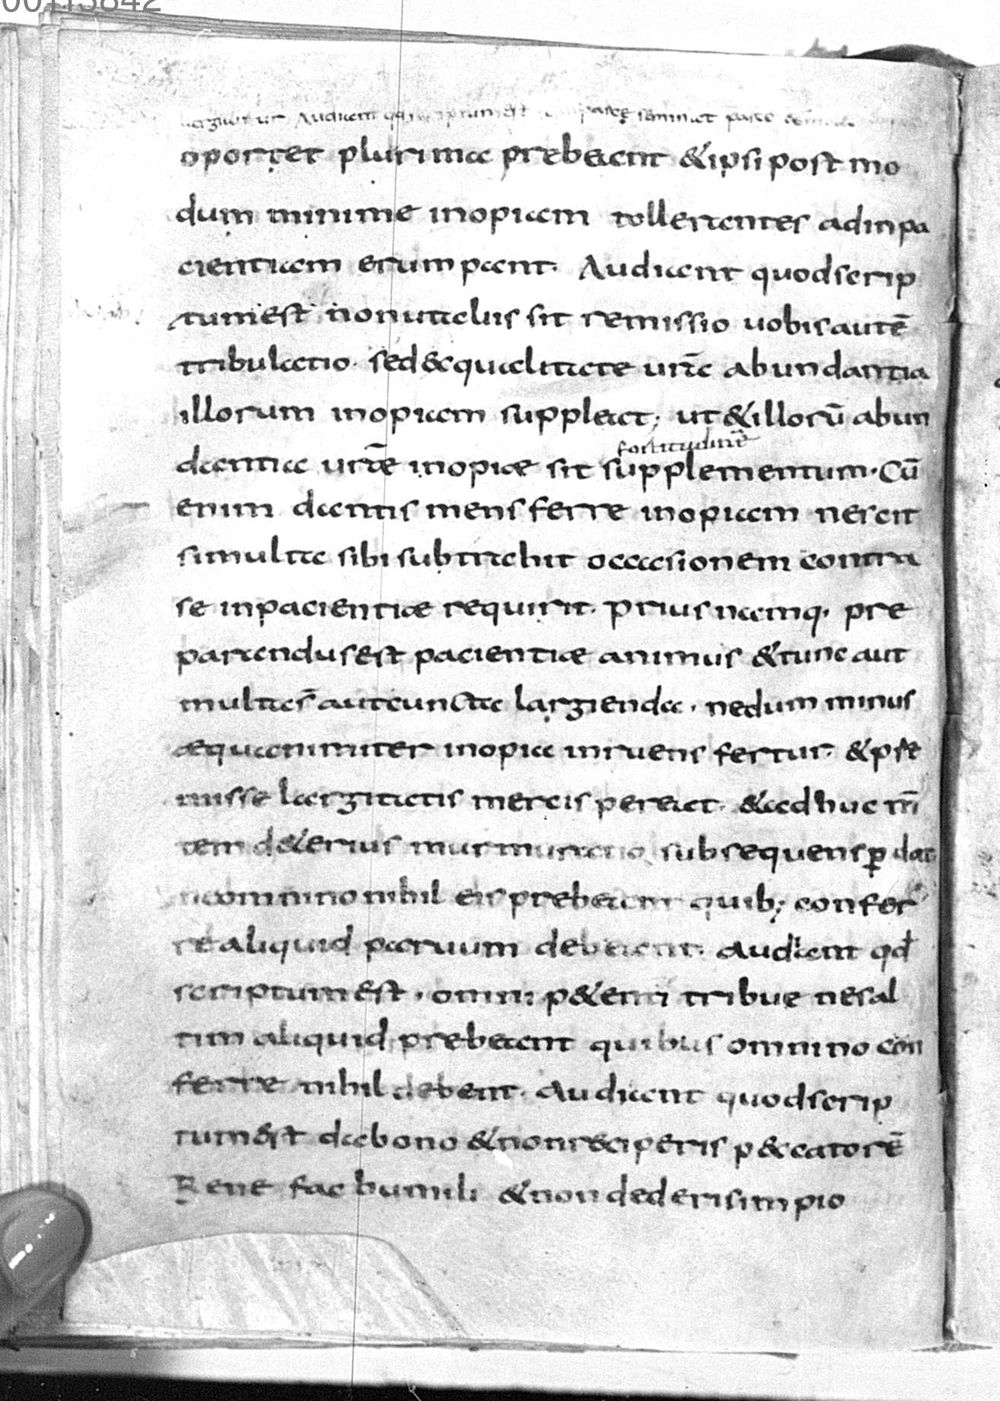 00113842
largiuntur Audient qui parce seminat parce
oportet plurima prebeant &ipsi post mo
dum minime inopiam tollerantes adinpa
cientiam erumpant. Audiant quodscrip
tumest non utaliis sit remissio uobisautē
tribulatio. sed&equalitate urā abundantia
illorum inopiam suppleat; ut&illorū abun
fortitudinē
dantia urāe inopiae sit supplementum. Cū
enim dantis mens ferre inopiam nescit
si multa sibi subtrahit occasionem contra
se inpacientiae requirit. prius namq. pre
parandusest pacientiae animus &tunc aut
multa s̄ aut cuncta largienda. nedum minus
aequanimiter inopia inruens fertur. &pre
misse largitatis mercis pereat. &adhuc m̄
tem d&erius murmuratio subsequens ꝑdat
omnino nihil eis prebeant quib; confer
re aliquid paruum debeant. Audiant qd̄
scriptumest. omni p&enti tribue nesal
tim aliquid prebeant quibus omnino con
ferre nihil debent. Audiant quodscrip
tumest dabono &nonreciperis p&catorē
Bene fac humili &non dederisimpio